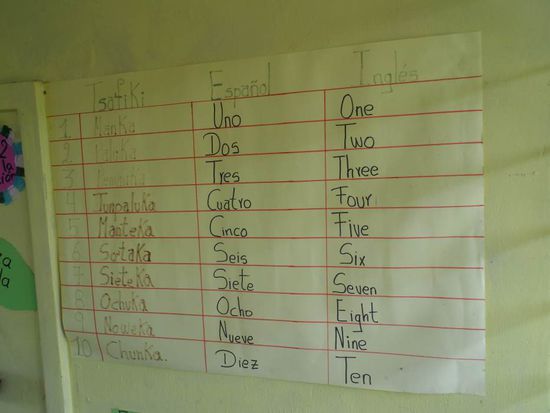 Tsafiki Español Inglés
1 Manka Uno One
2 Paluka Dos Two
3 Tres Three
4 Tunpaluka Cuatro Four
5 Manteka Cinco Five
6 Sotaka Seis Six
7 Sieteka Siete Seven
8 Ochuka Ocho Eight
9 Noweka Nueve Nine
10 Chunka. Diez Ten
2
la